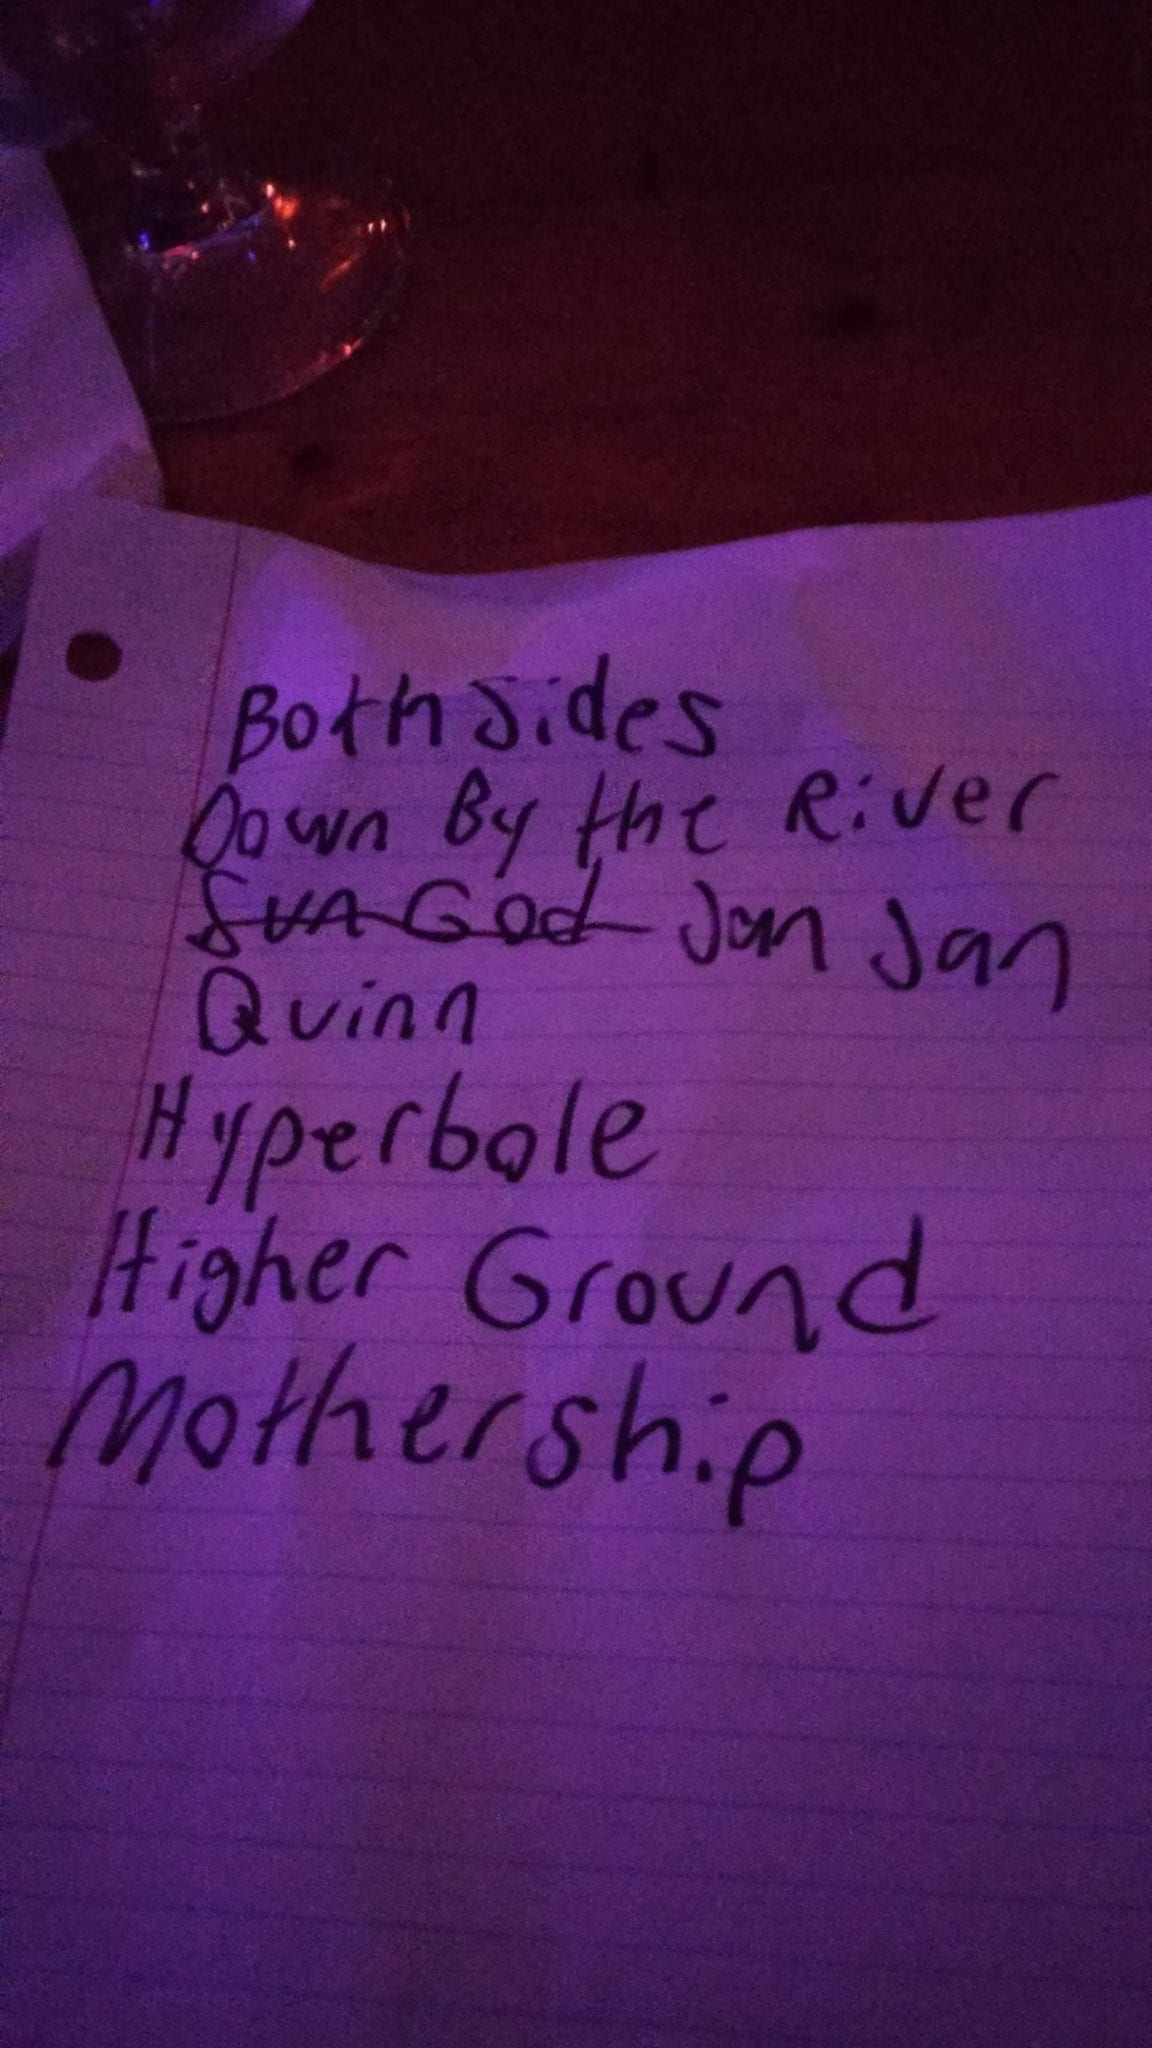 Both Sides
Down By the River
Sun God Jan Jan
Quinn
Hyperbole
Higher Ground
Mothership